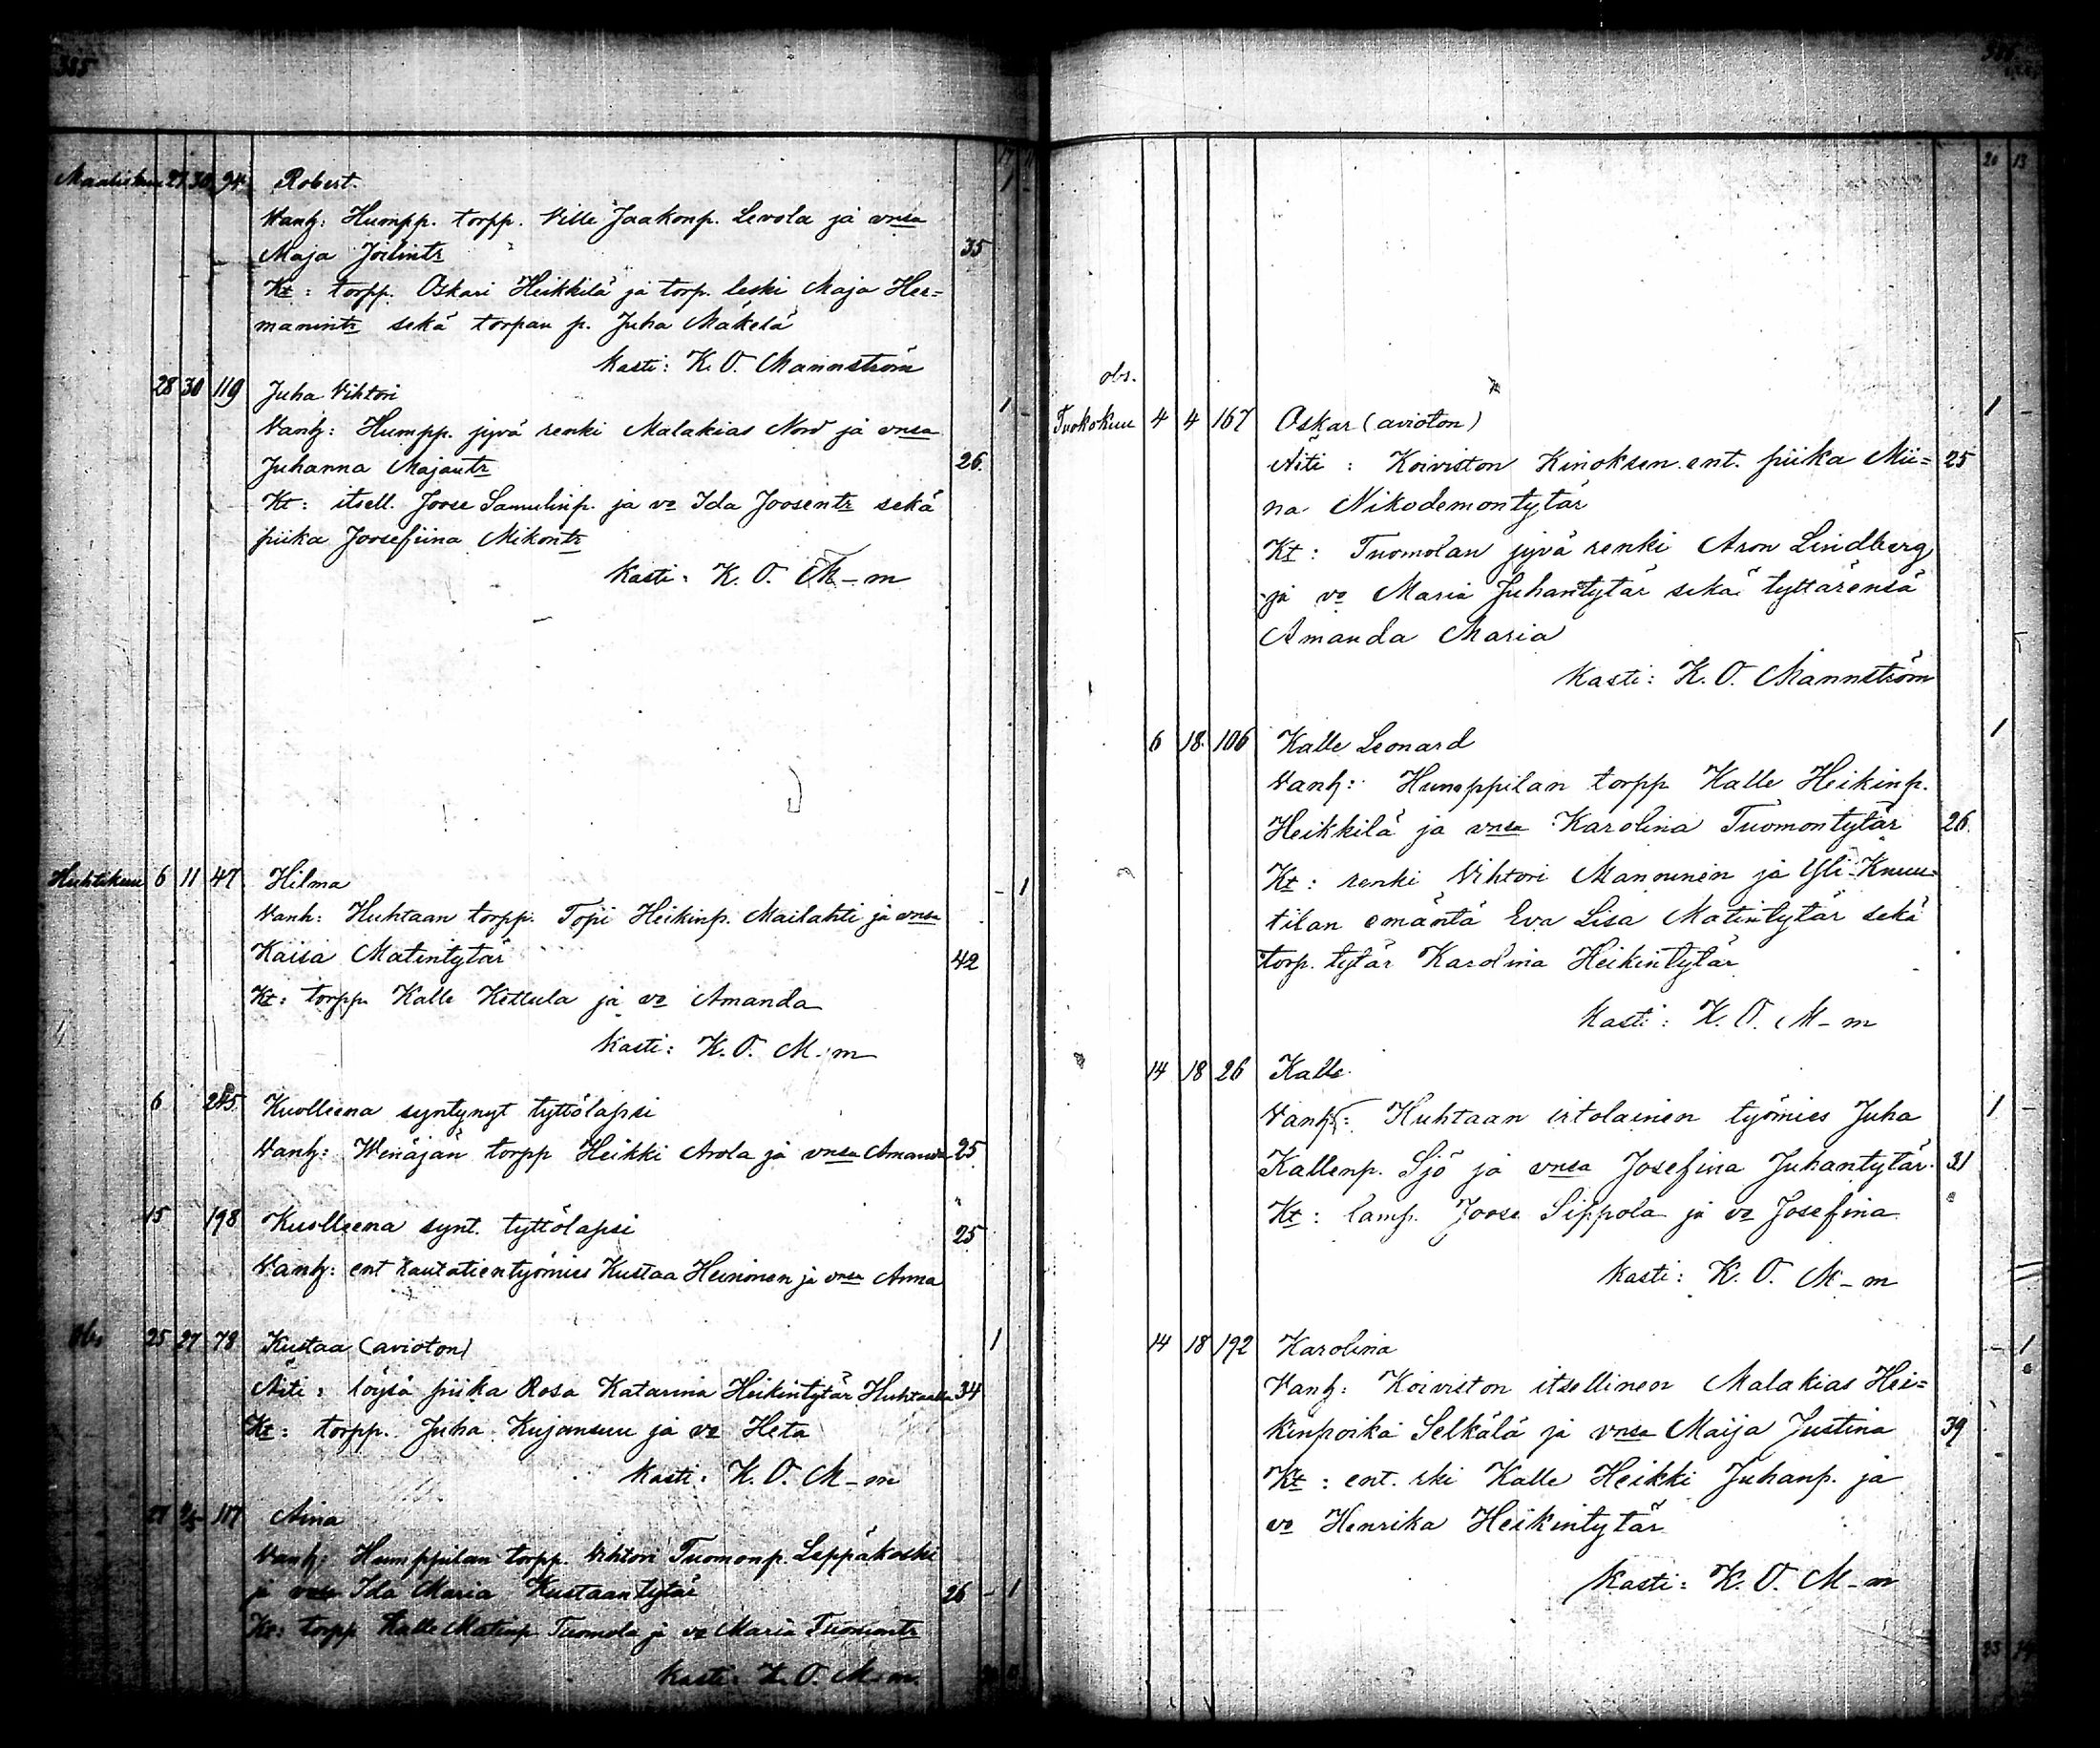 385
Maaliskuu 27 30 94 Robert. 1 -
Vanh: Humpp. torpp. Ville Jaakonp. Levola ja vnsa
Maja Joelintr 35
Kt: torpp. Oskari Heikkilä ja torp. leski Maja Her=
manintr sekä torpan p. Juha Mäkelä
Kasti: K. O. Mannström
28 30 119 Juha Vihtori 1 -
Vanh: Humpp. jyvä renki Malakias Nord ja vnsa
Juhanna Majantr 26.
Kt: itsell. Joose Samulinp. ja vo Ida Joosentr sekä
piika Joosefiina Mikontr
Kasti: K. O. M-m
Huhtikuu 6 11 47. Hilma - 1
Vanh: Huhtaan torpp. Topii Heikinp. Mailahti ja vnsa
Kaisa Matintytär 42
Kt: torpp. Kalle Kettula ja vo Amanda
Kasti: K. O. M-m
6 Kuolleena syntynyt tyttölapsi
Vanh: Wenäjän torpp Heikki Arola ja vnsa Amanda 25
15 198 Kuolleena synt. tyttölapsi 25
Vanh: ent rautatientyömies Kustaa Heininen ja vnsa Anna
Obs 25 27 78 Kustaa (avioton) 1
Äiti: löysä piika Rosa Katarina Heikintytär Huhtaalla 34
Kt: torpp. Juha Kujansuu ja vo Heta
Kasti: K. O. M-m
27 117 Aina
Vanh: Humppilan torpp. Vihtori Tuomonp. Leppäkoski
ja vnsa Ida Maria Kustaantytär 26 - 1
Kt: torpp Kalle Matinp Tuomola ja vo Maria Tuomontr
Kasti: K. O. M-m.
20 13
obs.
Toukokuu 4 4 167 Oskar (avioton) 1 -
Äiti: Koiviston Kinoksen ent. piika Mii= 25
na Nikodemontytär
Kt: Tuomolan jyvä renki Aron Lindberg
ja vo Maria Juhantytär sekä tyttärensä
Amanda Maria
Kasti: K. O. Mannström
6 18. 106 Kalle Leonard 1
Vanh: Humppilan torpp Kalle Heikinp.
Heikkilä ja vnsa Karolina Tuomontytär 26.
Kt: renki Vihtori Manninen ja Yli-Knuu=
tilan emäntä Eva Lisa Matintytär sekä
torp. tytär Karolina Heikintytär
Kasti: K. O. M-m
14 18 26 Kalle.
Vanh: Huhtaan irtolainen työmies Juha 1 -
Kallenp. Sjö ja vnsa Josefina Juhantytär. 31
Kt: lamp. Joose Sippola ja vo Josefina.
Kasti: K. O. M-m
14 18 192 Karolina - 1
Vanh: Koiviston itsellinen Malakias Hei=
kinpoika Selkälä ja vnsa Maija Justina 39
Kt: ent. rki Kalle Heikki Juhanp. ja
vo Henrika Heikintytär
Kasti: K. O. M-m
23 14